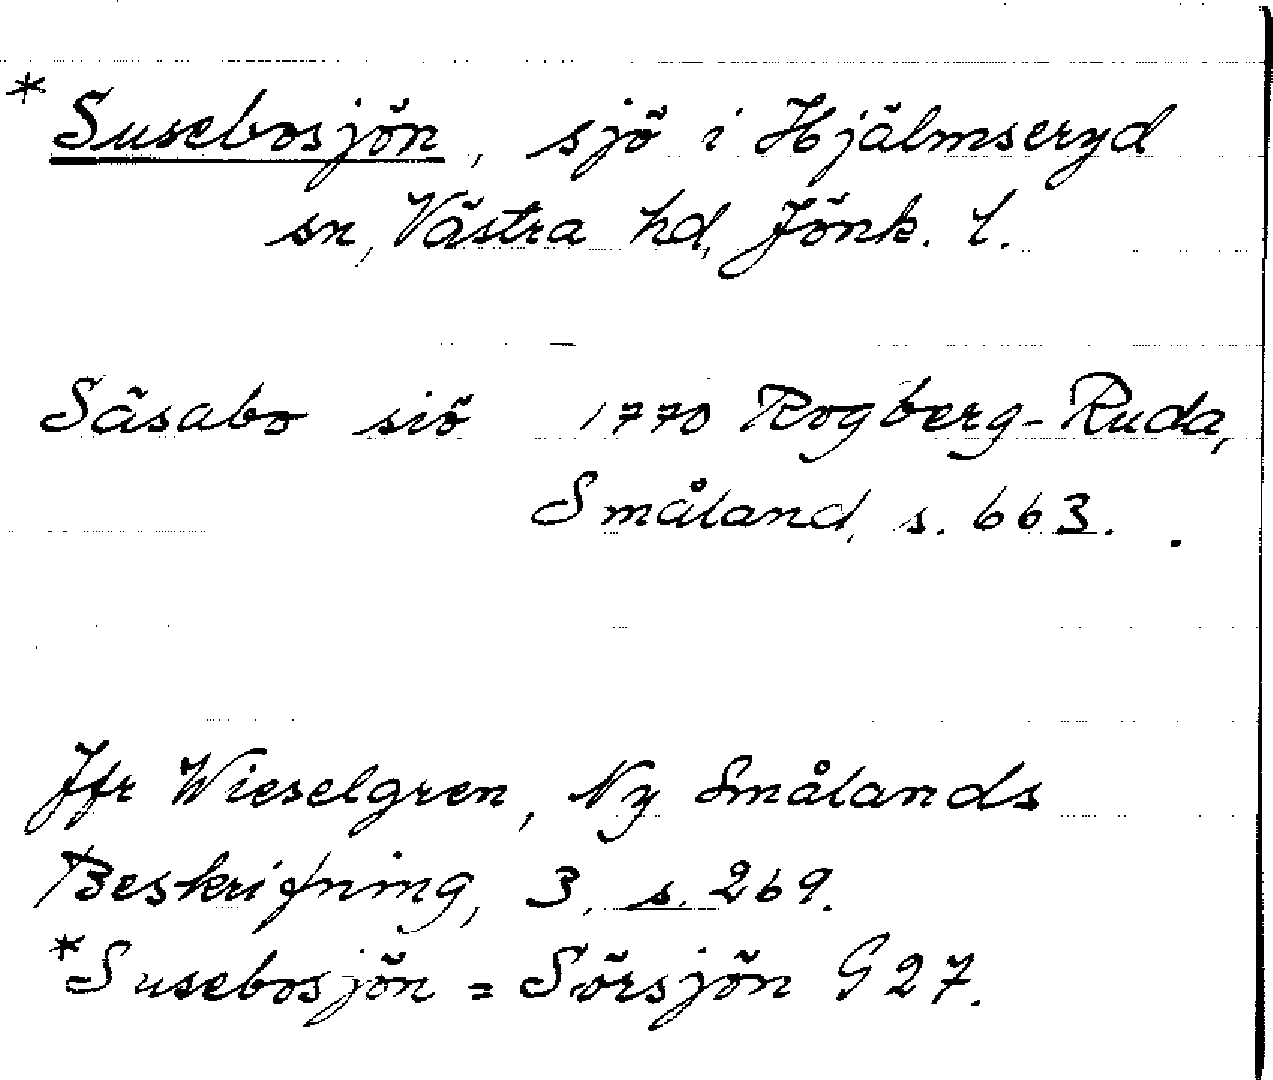 * Susebosjön, sjö i Hjälmseryd
sn, Västra hd, Jönk. l.
Säsabo siö 1770 Rogberg-Ruda,
Småland, s. 663.
Jfr Wieselgren, Ny Smålands
Beskrifning, 3, s. 269.
*Susebosjön = Sörsjön G 27.